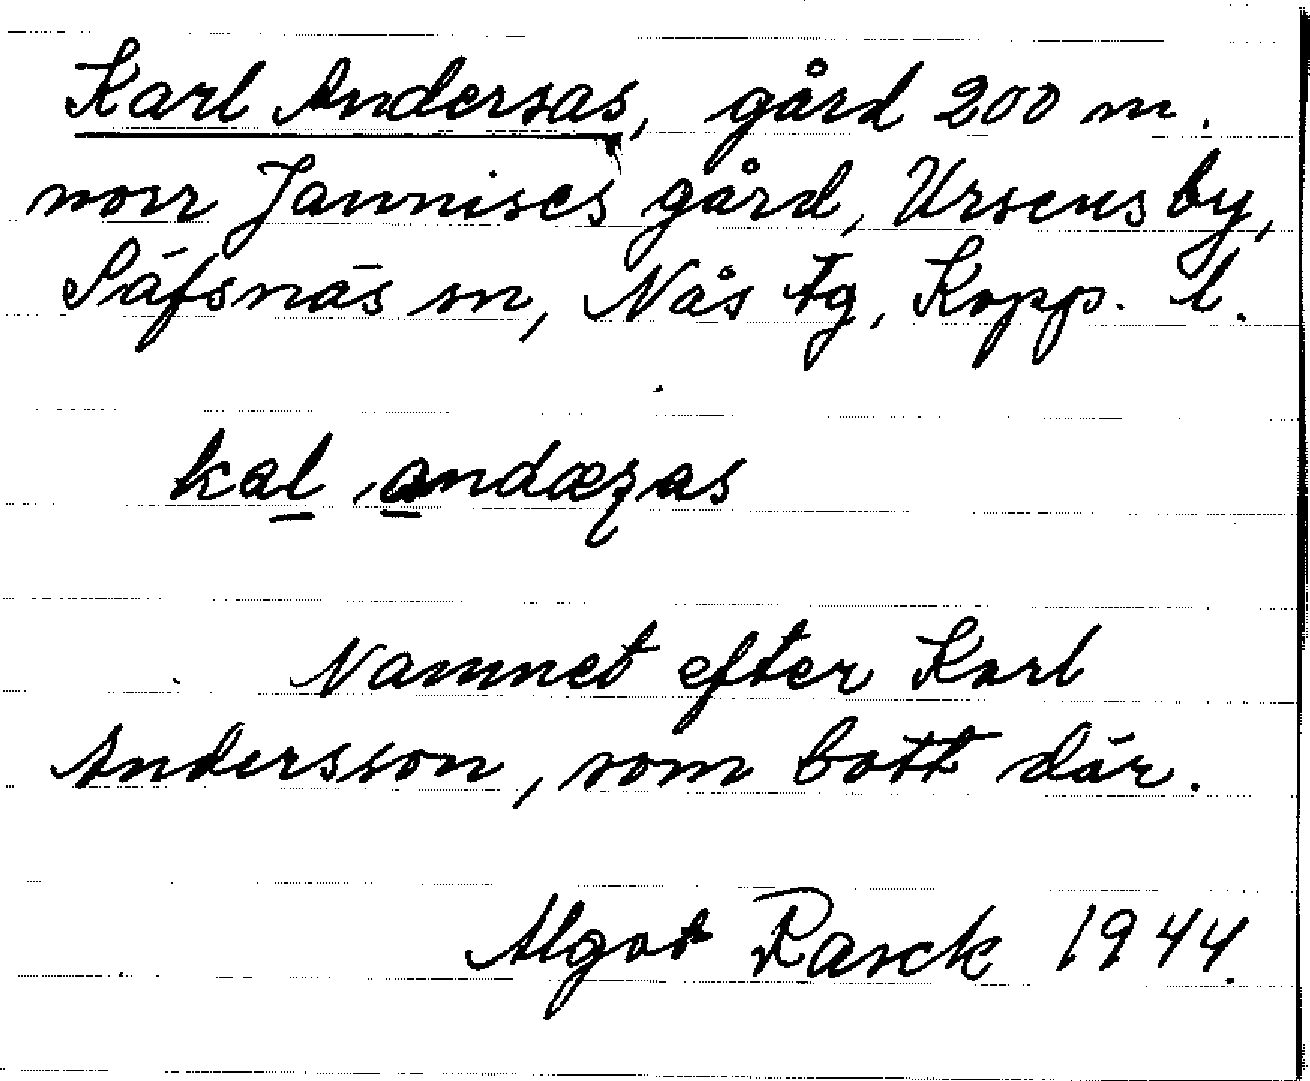 Karl Andersas, gård 200 m.
norr Jannises gård, Ursensby,
Säfsnäs sn, Nås tg, Kopp. l.
kal andæʒas
Namnet efter Karl
Andersson, som bott där.
Algot Rasck 1944.